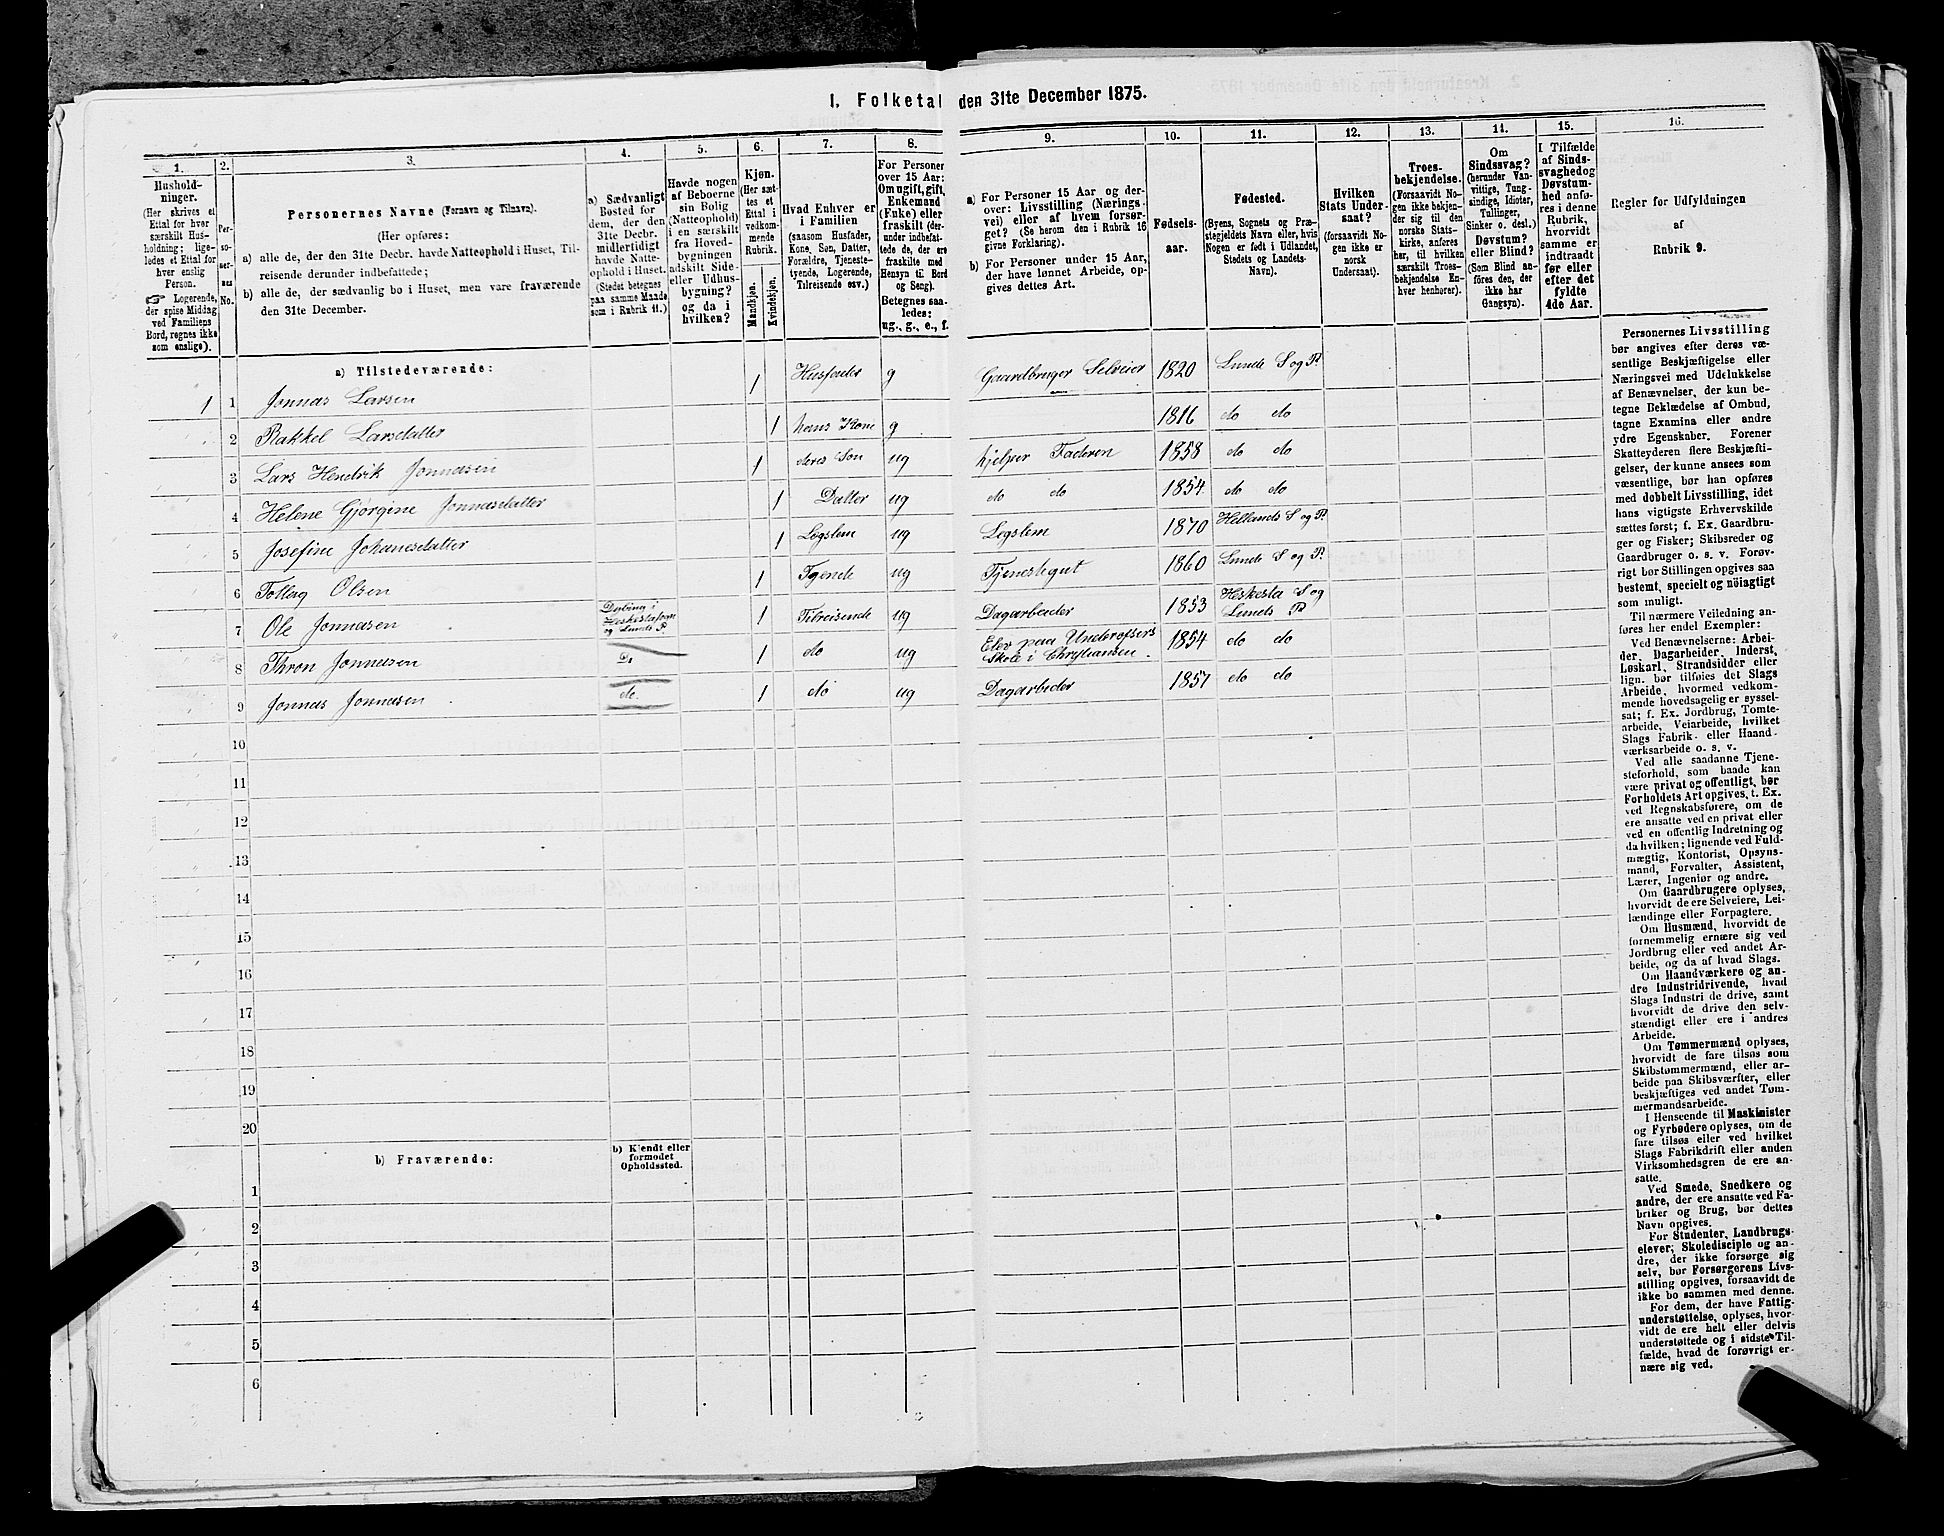 1. Folketal den 31te December 1875.
1.
Hushold-
ninger.
(Her skrives et
Ettal for hver
særskilt Hus-
holdning; lige-
ledes et Ettal for
hver enslig
Person.
☞ Logerende,
der spise Middag
ved Familiens
Bord, regnes ikke
som enslige).
2.
Per-
so-
ner-
nes
No.
3.
Personernes Navne (Fornavn og Tilnavn).
(Her opføres:
a) alle de, der den 31te Decbr. havde Natteophold i Huset, Til-
reisende derunder indbefattede;
b) alle de, der sædvanlig bo i Huset, men vare fraværende
den 31te December.
4.
a) Sædvanligt
Bosted for
dem, der den
31te Decbr.
midlertidigt
havde Natte-
ophold i Huset.
(Stedet betegnes
paa samme Maade
som i Rubrik 11.)
5.
Havde nogen
af Beboerne
sin Bolig
(Natteophold)
i en særskilt
fra Hoved-
bygningen
adskilt Side-
eller Udhus-
bygning?
og da i
hvilken?
6.
Kjøn.
(Her sæt-
tes et
Ettal i
vedkom-
mende
Rubrik.
Mandkjøn.
Kvindekjøn.
7.
Hvad Enhver er
i Familien
(saasom Husfader,
Kone, Søn, Datter,
Forældre, Tjeneste-
tyende, Logerende,
Tilreisende osv.)
8.
For Personer
over 15 Aar:
Om ugift, gift,
Enkemand
(Enke) eller
fraskilt (der-
under indbefat-
tede de, der ere
fraskilte med
Hensyn til Bord
og Seng).
Betegnes saa-
ledes:
ug., g., e., f.
9.
a) For Personer 15 Aar og der-
over: Livsstilling (Nærings-
vei) eller af hvem forsør-
get? (Se herom den i Rubrik 16
givne Forklaring).
b) For Personer under 15 Aar,
der have lønnet Arbeide, op-
gives dettes Art.
10.
Fødsels-
aar.
11.
Fødested.
(Byens, Sognets og Præ-
stegjeldets Navn eller, hvis
Nogen er født i Udlandet,
Stedets og Landets
Navn).
12.
Hvilken
Stats Under-
saat?
(forsaavidt No-
gen ikke er
norsk
Undersaat).
13.
Troes-
bekjendelse.
(Forsaavidt No-
gen ikke bekjen-
der sig til den
norske Stats-
kirke, anføres
her, til hvilken
særskilt Troes-
bekjendelse En-
hver henhører).
14.
Om
Sindssvag?
(herunder Van-
vittige, Tung-
sindige, Idioter,
Tullinger,
Sinker o. desl.)
Døvstum?
eller Blind?
(Som Blind an-
føres den, der
ikke har
Gangsyn).
15.
I Tilfælde
af Sinds-
svaghed og
Døvstum-
hed anfø-
res i denne
Rubrik,
hvorvidt
samme er
indtraadt
før eller
efter det
fyldte
4de Aar.
16.
Regler for Udfyldningen
af
Rubrik 9.
a) Tilstedeværende:
1 1 Jonnas Larsen 1 Husfader g Gaardbruger Selveier 1820 Lunde S og P.
2 Rakkel Larsdatter 1 hans Kone g 1816 do do
3 Lars Hendrik Jonnasen 1 deres Søn ug hjelper Faderen 1858 do do
4 Helene Gjørgine Jonnasdatter 1 Datter ug do do 1854 do do
5 Josefine Johanesdatter 1 Legslem ug Legslem 1870 Hellands S og P.
6 Tolleg Olsen 1 Tjende ug Tjenestegut 1860 Lunde S og P.
7 Ole Jonnasen Heskestad og Lunds P. 1 Tilreisende ug Dagarbeider 1853 Heskesta S og
Lunds P
8 Thron Jonnasen Do 1 do ug Elev paa Underofsers
Skole i Christiansen. 1854 do do
9 Jonnas Jonnasen do. 1 do ug Dagarbeder 1857 do do
10
11
12
13
14
15
16
17
18
19
20
b) Fraværende:
b) Kjendt eller
formodet
Opholdssted.
1
2
3
4
5
6
Personernes Livsstilling
bør angives efter deres væ-
sentlige Beskjæftigelse eller
Næringsvei med Udelukkelse
af Benævnelser, der kun be-
tegne Beklædelse af Ombud,
tagne Examina eller andre
ydre Egenskaber. Forener
Skatteyderen flere Beskjæfti-
gelser, der kunne ansees som
væsentlige, bør han opføres
med dobbelt Livsstilling, idet
hans vigtigste Erhvervskilde
sættes først; f. Ex. Gaardbru-
ger og Fisker; Skibsreder og
Gaardbruger o. s. v. Forøv-
rigt bør Stillingen opgives saa
bestemt, specielt og nøiagtigt
som muligt.
Til nærmere Veiledning an-
føres her endel Exempler:
Ved Benævnelserne: Arbei-
der, Dagarbeider, Inderst,
Løskarl, Strandsidder eller
lign. bør tilføies det Slags
Arbeide, hvormed vedkom-
mende hovedsagelig er syssel-
sat; f. Ex. Jordbrug, Tomte-
arbeide, Veiarbeide, hvilket
Slags Fabrik- eller Haand-
værksarbeide o. s. v.
Ved alle saadanne Tjene-
steforhold, som baade kan
være privat og offentligt, bør
Forholdets Art opgives, t. Ex.
ved Regnskabsførere, om de
ere ansatte ved en privat eller
ved en offentlig Indretning og
da hvilken; lignende ved Fuld-
mægtig, Kontorist, Opsyns-
mand, Forvalter, Assistent,
Lærer, Ingeniør og andre.
Om Gaardbrugere oplyses,
hvorvidt de ere Selveiere, Lei-
lændinge eller Forpagtere.
Om Husmænd, hvorvidt de
fornemmelig ernære sig ved
Jordbrug eller ved andet Ar-
beide, og da af hvad Slags.
Om Haandværkere og an-
dre Industridrivende, hvad
Slags Industri de drive, samt
hvorvidt de drive den selv-
stændigt eller ere i andres
Arbeide.
Om Tømmermænd oplyses,
hvorvidt de fare tilsøs som
Skibstømmermænd, eller ar-
beide paa Skibsværfter, eller
beskjæftiges ved andet Tøm-
mermandsarbeide.
I Henseende til Maskinister
og Fyrbødere oplyses, om de
fare tilsøs eller ved hvilket
Slags Fabrikdrift eller anden
Virksomhedsgren de ere an-
satte.
Ved Smede, Snedkere og
andre, der ere ansatte ved Fa-
briker og Brug, bør dettes
Navn opgives.
For Studenter, Landbrugs-
elever, Skoledisciple og an-
dre, der ikke forsørge sig
selv, bør Forsørgerens Livs-
stilling opgives, forsaavidt de
ikke bo sammen med denne.
For dem, der have Fattig-
understøttelse, oplyses, hvor-
vidt de ere helt eller delvis
understøttede og i sidste Til-
fælde, hvad de forøvrigt er-
nære sig ved.